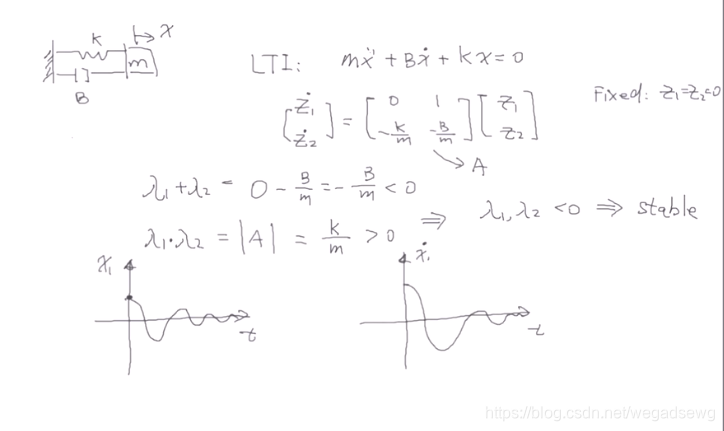 K
→ x
m
B
LTI: mẍ + Bẋ + kx = 0
[ż₁ ż₂] = [0 1 -k/m -B/m] [z₁ z₂]
Fixed: z₁=z₂=0
A
λ₁+λ₂ = 0 - B/m = - B/m < 0
λ₁·λ₂ = |A| = k/m > 0
⇒ λ₁, λ₂ < 0 ⇒ stable
x₁
t
ẋ₁
t
https://blog.csdn.net/wegadsewg